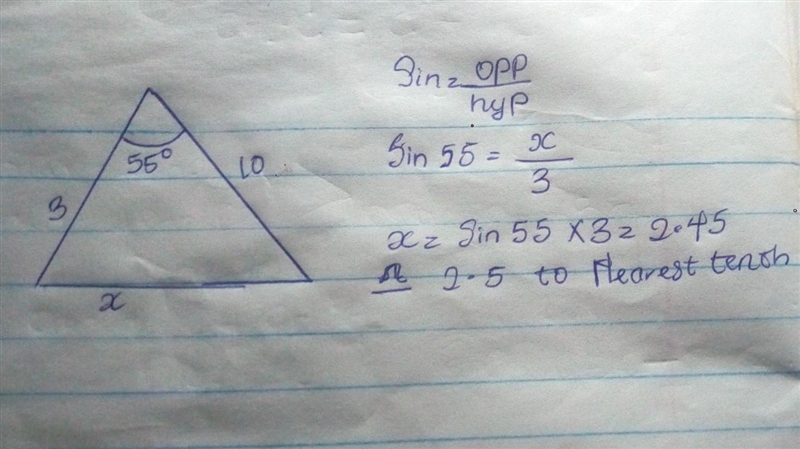 55°
10
3
x
Sin = opp
hyp
Sin 55 = x
3
x = Sin 55 × 3 = 2.45
2.5 to Nearest tenth